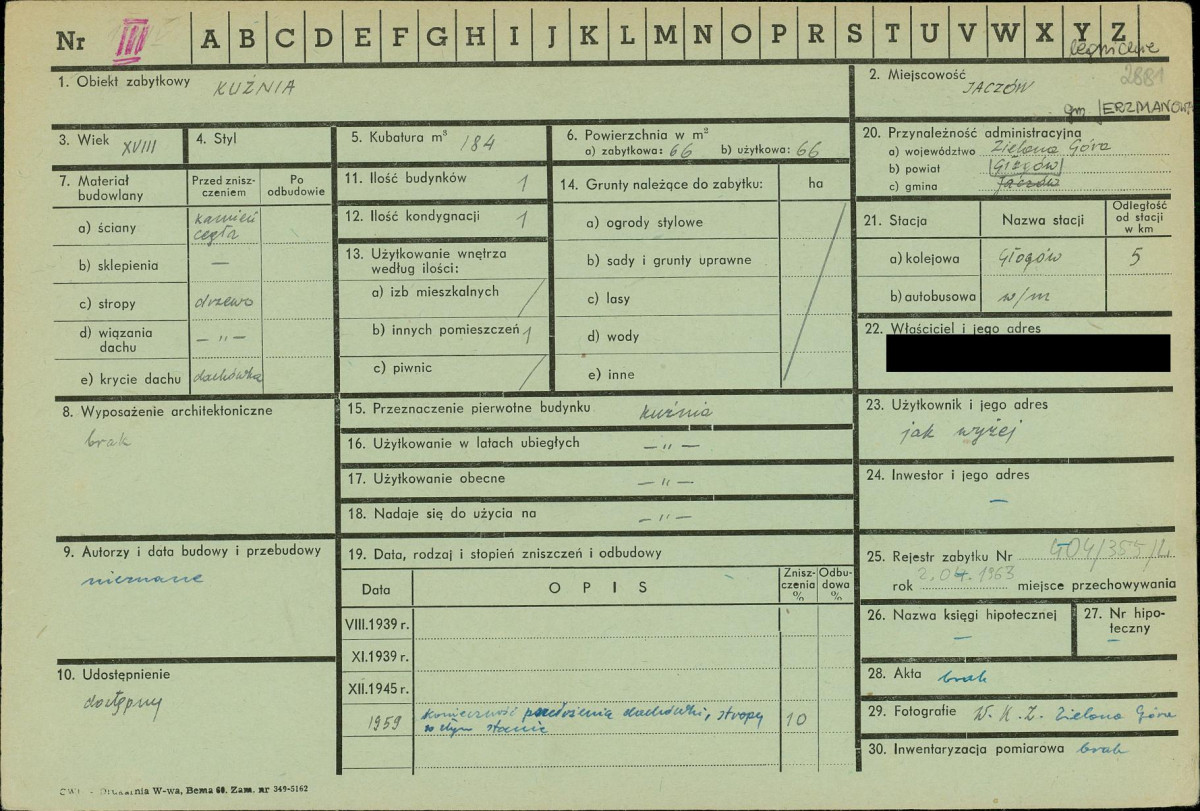 Nr III A B C D E F G H I J K L M N O P R S T U V W X Y Z
legnickie
2881
1. Obiekt zabytkowy KUŹNIA
2. Miejscowość JACZÓW
gm JERZMANOWA
3. Wiek XVIII
4. Styl
5. Kubatura m³ 184
6. Powierzchnia w m²
a) zabytkowa: 66 b) użytkowa: 66
7. Materiał budowlany
Przed zniszczeniem
Po odbudowie
a) ściany kamień cegła
b) sklepienia —
c) stropy drzewo
d) wiązania dachu — " —
e) krycie dachu dachówka
8. Wyposażenie architektoniczne
brak
9. Autorzy i data budowy i przebudowy
nieznane
10. Udostępnienie
dostępny
11. Ilość budynków 1
12. Ilość kondygnacji 1
13. Użytkowanie wnętrza według ilości:
a) izb mieszkalnych /
b) innych pomieszczeń 1
c) piwnic /
14. Grunty należące do zabytku: ha
a) ogrody stylowe
b) sady i grunty uprawne
c) lasy
d) wody
e) inne
15. Przeznaczenie pierwotne budynku kuźnia
16. Użytkowanie w latach ubiegłych — " —
17. Użytkowanie obecne — " —
18. Nadaje się do użycia na — " —
19. Data, rodzaj i stopień zniszczeń i odbudowy
Data OPIS Zniszczenia % Odbudowa %
VIII.1939 r.
XI.1939 r.
XII.1945 r.
1959 konieczność przełożenia dachówki, stropy 10
w złym stanie
20. Przynależność administracyjna
a) województwo Zielona Góra
b) powiat Głogów
c) gmina Jaczów
21. Stacja Nazwa stacji Odległość od stacji w km
a) kolejowa Głogów 5
b) autobusowa w/m
22. Właściciel i jego adres
23. Użytkownik i jego adres
jak wyżej
24. Inwestor i jego adres
—
25. Rejestr zabytku Nr 404/355/L
rok 2.04.1963 miejsce przechowywania
26. Nazwa księgi hipotecznej
—
27. Nr hipoteczny
—
28. Akta brak
29. Fotografie W. K. Z. Zielona Góra
30. Inwentaryzacja pomiarowa brak
Drukarnia W-wa, Bema 60. Zam. nr 349-5162